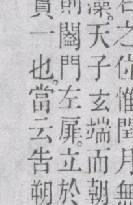 右之位惟閏月無
藻。天子玄端而朝
則闔門左扉。立於
實一也。當云告朔